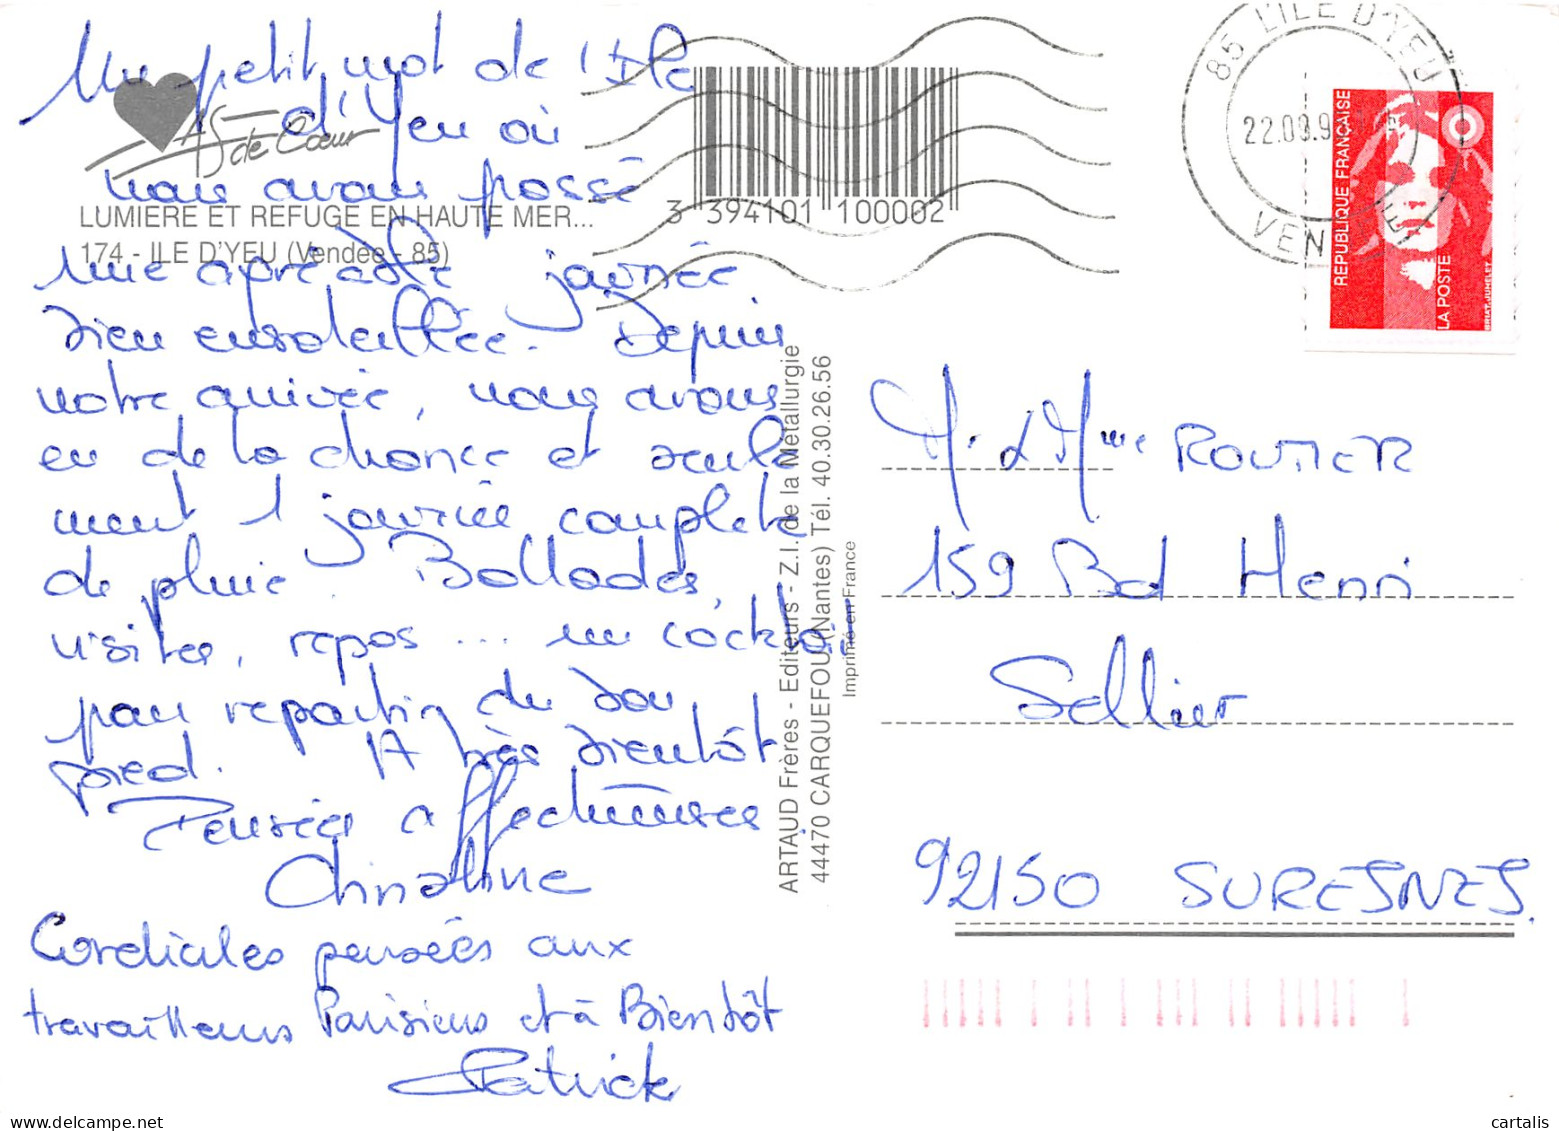 Un petit mot de l'Ile
d'Yeu où
nous avons passé
une après-midi journée
bien ensoleillée. Depuis
notre arrivée, nous avons
eu de la chance et seule
ment 1 journée complète
de pluie. Ballades,
visites, repos ... un cocktail
pour repartir du bon
pied. A très bientôt
Pensées affectueuses
Christine
Cordiales pensées aux
travailleurs Parisiens et à Bientôt
Patrick
AS de Cœur
LUMIERE ET REFUGE EN HAUTE MER...
174 - ILE D'YEU (Vendée - 85)
3 394101 100002
ARTAUD Frères - Editeurs - Z.I. de la Métallurgie
44470 CARQUEFOU (Nantes) Tél. 40.30.26.56
Imprimé en France
85 L'ILE D'YEU
22.08.9
VENDEE
REPUBLIQUE FRANÇAISE
LA POSTE
BRIAT-JUMELET
Mr & Mme ROUTIER
159 Bd Henri
Sellier
92150 SURESNES.
cartalis